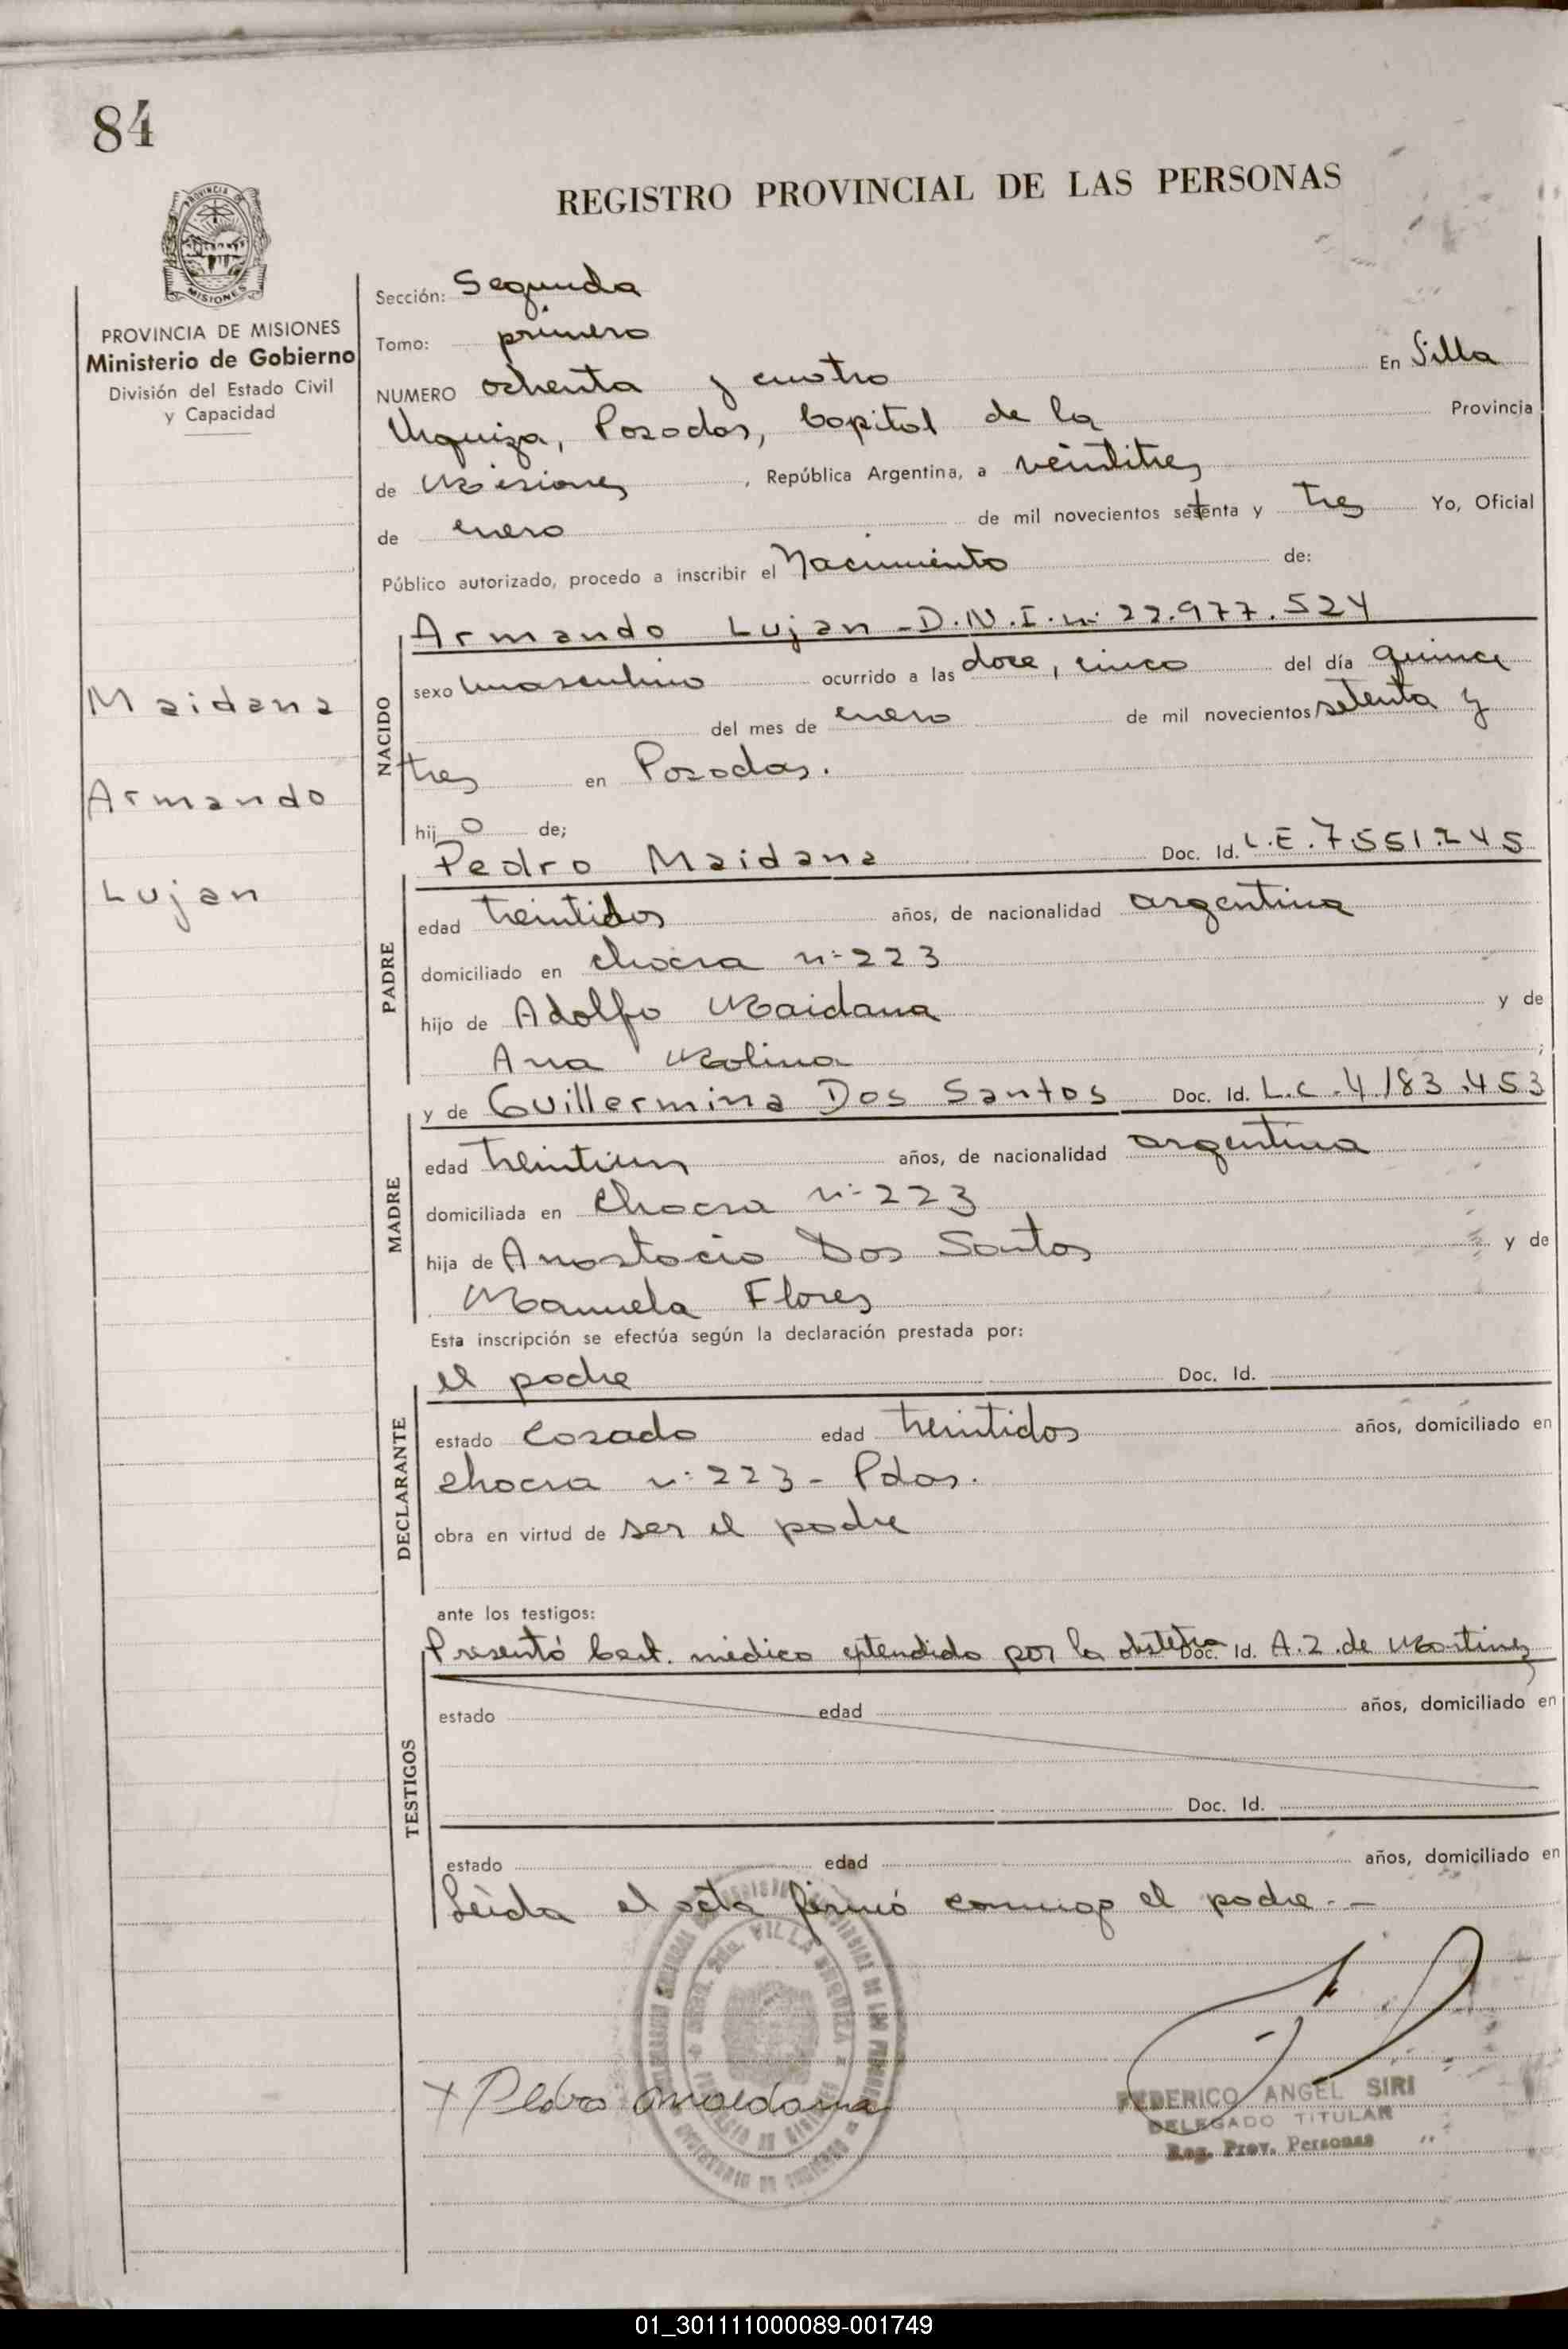 84
REGISTRO PROVINCIAL DE LAS PERSONAS
PROVINCIA
MISIONES
PROVINCIA DE MISIONES
Ministerio de Gobierno
División del Estado Civil
y Capacidad
Maidana
Armando
Lujan
Sección: Segunda
Tomo: primero
NUMERO ochenta y cuatro En Villa
Urquiza, Posadas, Capital de la Provincia
de Misiones, República Argentina, a veintitres
de enero de mil novecientos setenta y tres Yo, Oficial
Público autorizado, procedo a inscribir el Nacimiento de:
NACIDO
Armando Lujan - D.N.I. nº 22.977.524
sexo masculino ocurrido a las doce, cinco del día quince
del mes de enero de mil novecientos setenta y
tres en Posadas.
hij o de;
PADRE
Pedro Maidana Doc. Id. L.E. 7.551.245
edad treintidos años, de nacionalidad argentina
domiciliado en chacra nº 223
hijo de Adolfo Maidana y de
Ana Molina ;
MADRE
y de Guillermina Dos Santos Doc. Id. L.C. 4.183.453
edad treintiun años, de nacionalidad argentina
domiciliada en chacra nº 223
hija de Anastacio Dos Santos y de
Manuela Flores
Esta inscripción se efectúa según la declaración prestada por:
DECLARANTE
el padre Doc. Id.
estado casado edad treintidos años, domiciliado en
chacra nº 223 - Pdas.
obra en virtud de ser el padre
ante los testigos:
TESTIGOS
Presentó Cert. médico extendido por la obstetra Doc. Id. A. Z. de Martinez
estado edad años, domiciliado en
Doc. Id.
estado edad años, domiciliado en
Leída el acta firmó conmigo el padre. -
VILLA URQUIZA
x Pedro Maidana
FEDERICO ANGEL SIRI
DELEGADO TITULAR
Reg. Prov. Personas
01_301111000089-001749